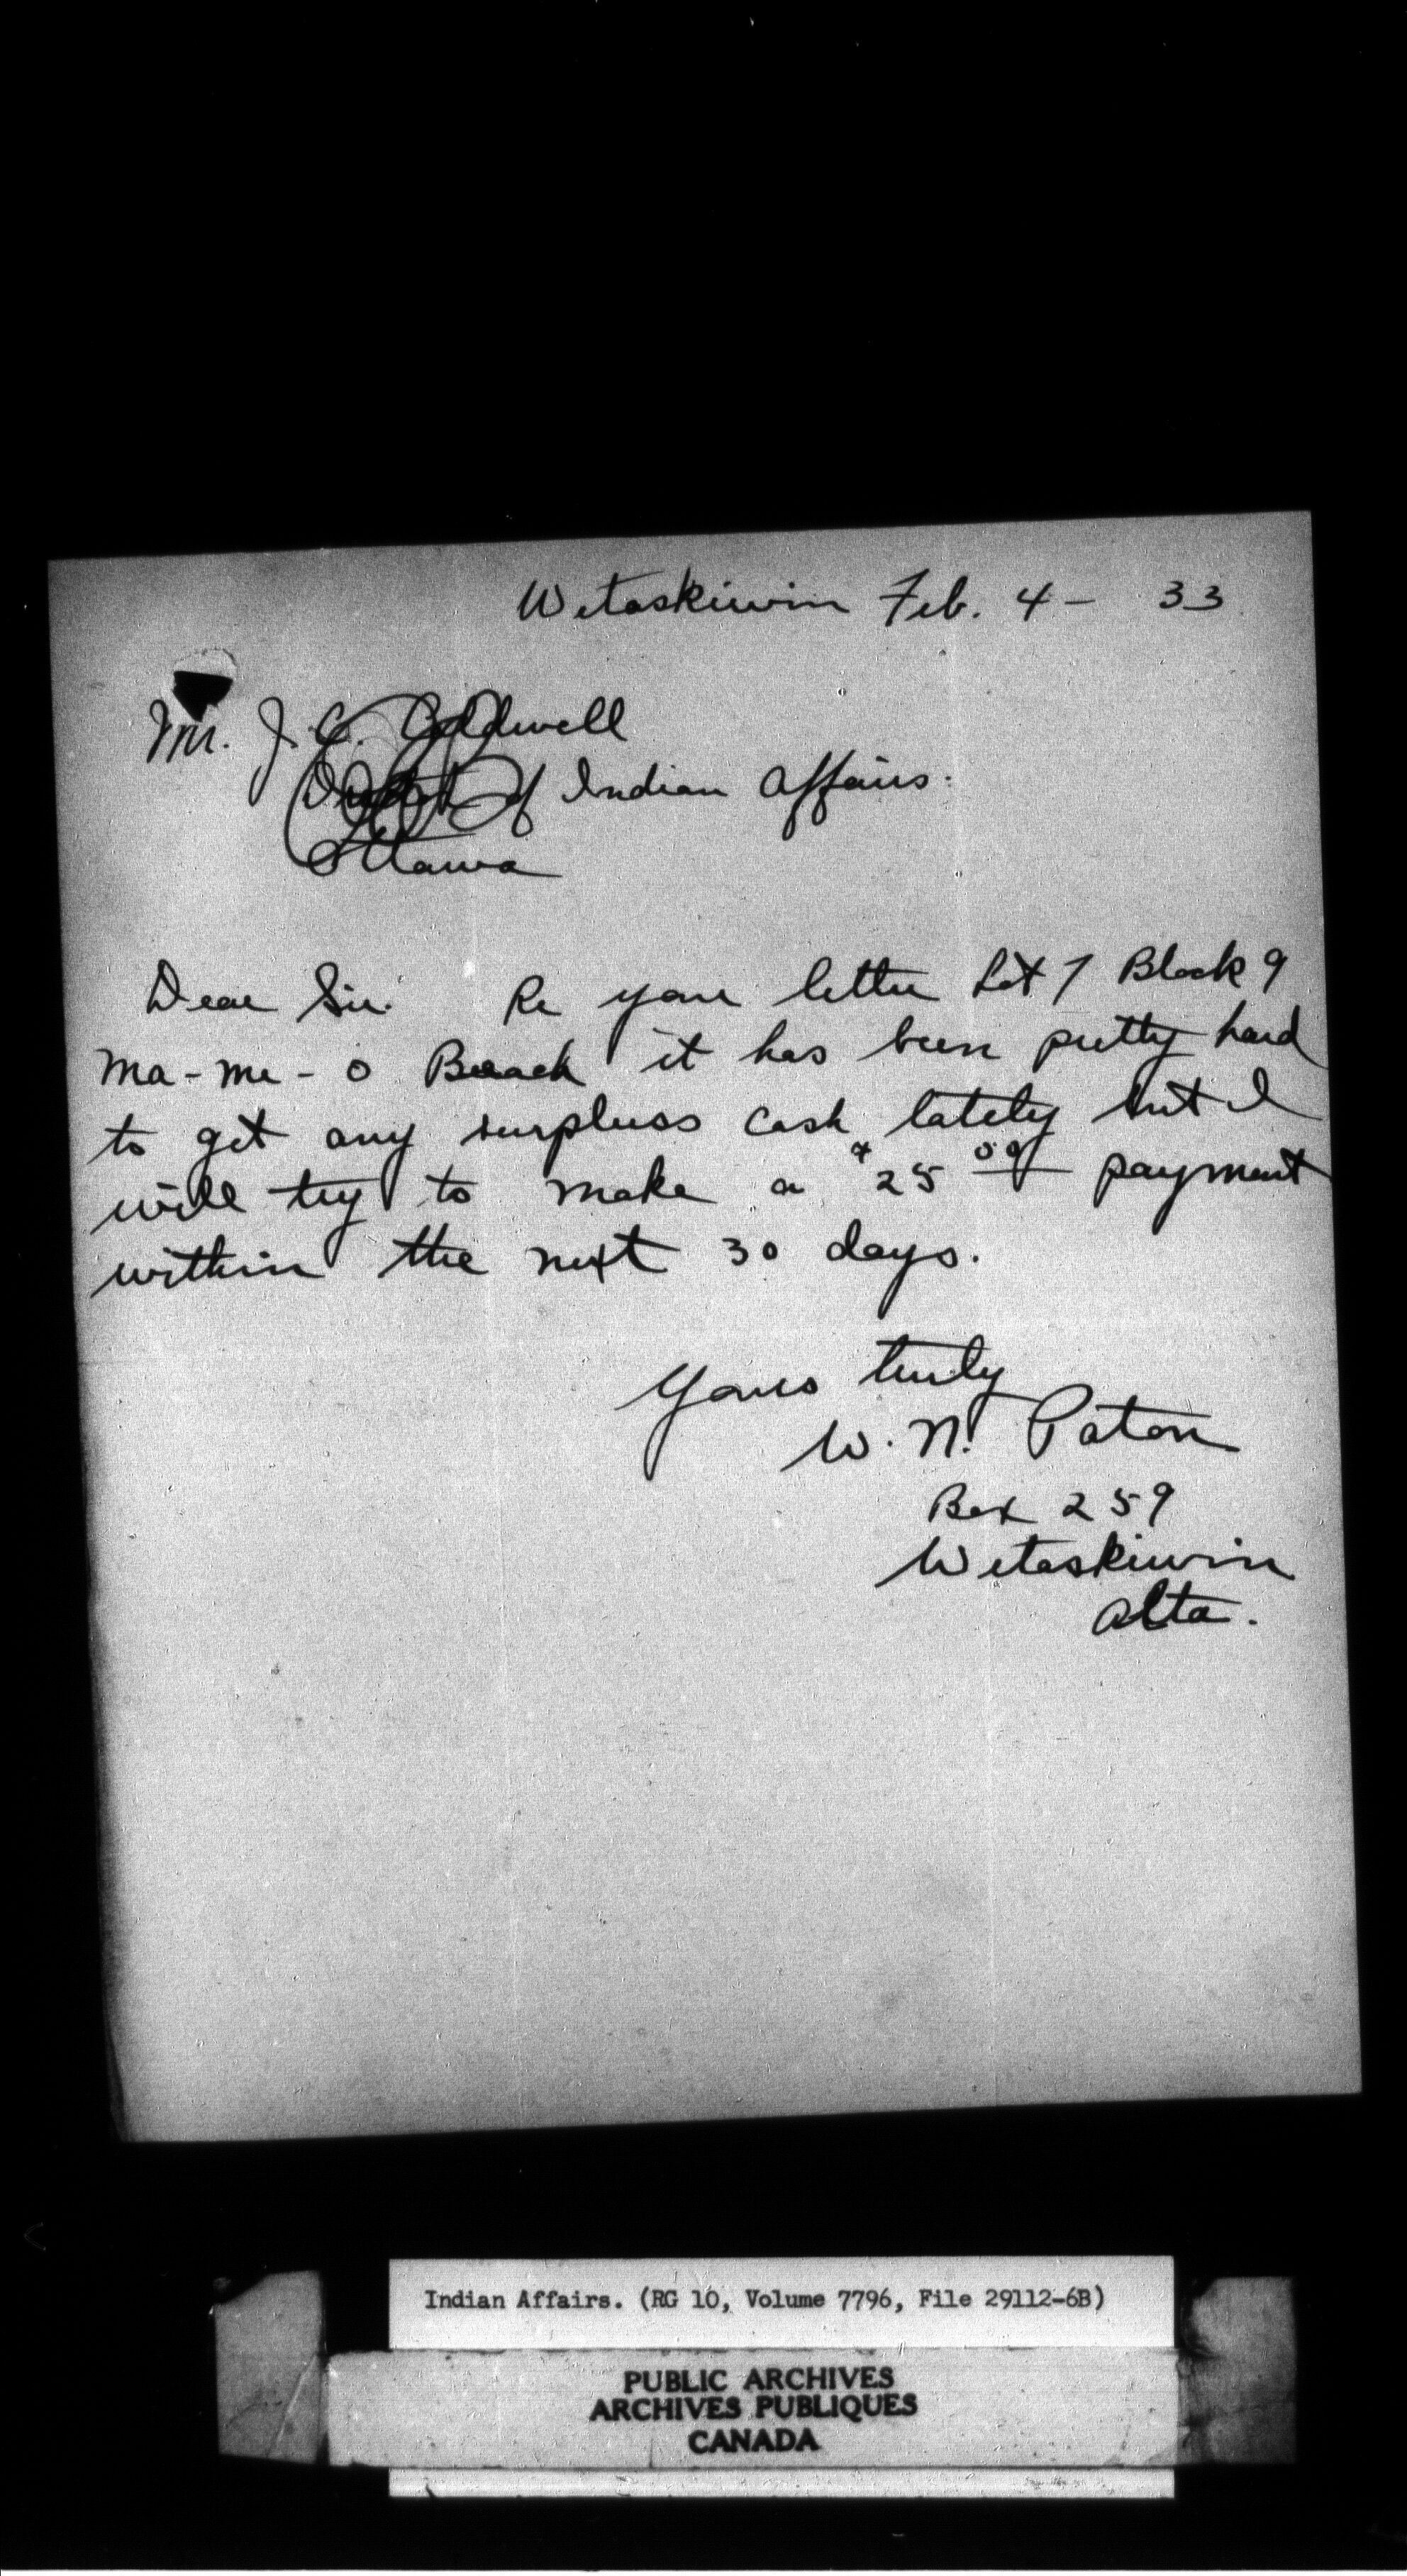 Wetaskiwin Feb. 4 - 33
Mr. J. C. Caldwell
Dept of Indian Affairs.
Ottawa
Dear Sir. Re your letter Lot 7 Block 9
Ma-me-o Beach it has been pretty hard
to get any surpluss cash lately but I
will try to make a $25 00 payment
within the next 30 days.
Yours truly
W. N. Paton
Box 259
Wetaskiwin
Alta.
Indian Affairs. (RG 10, Volume 7796, File 29112-6B)
PUBLIC ARCHIVES
ARCHIVES PUBLIQUES
CANADA